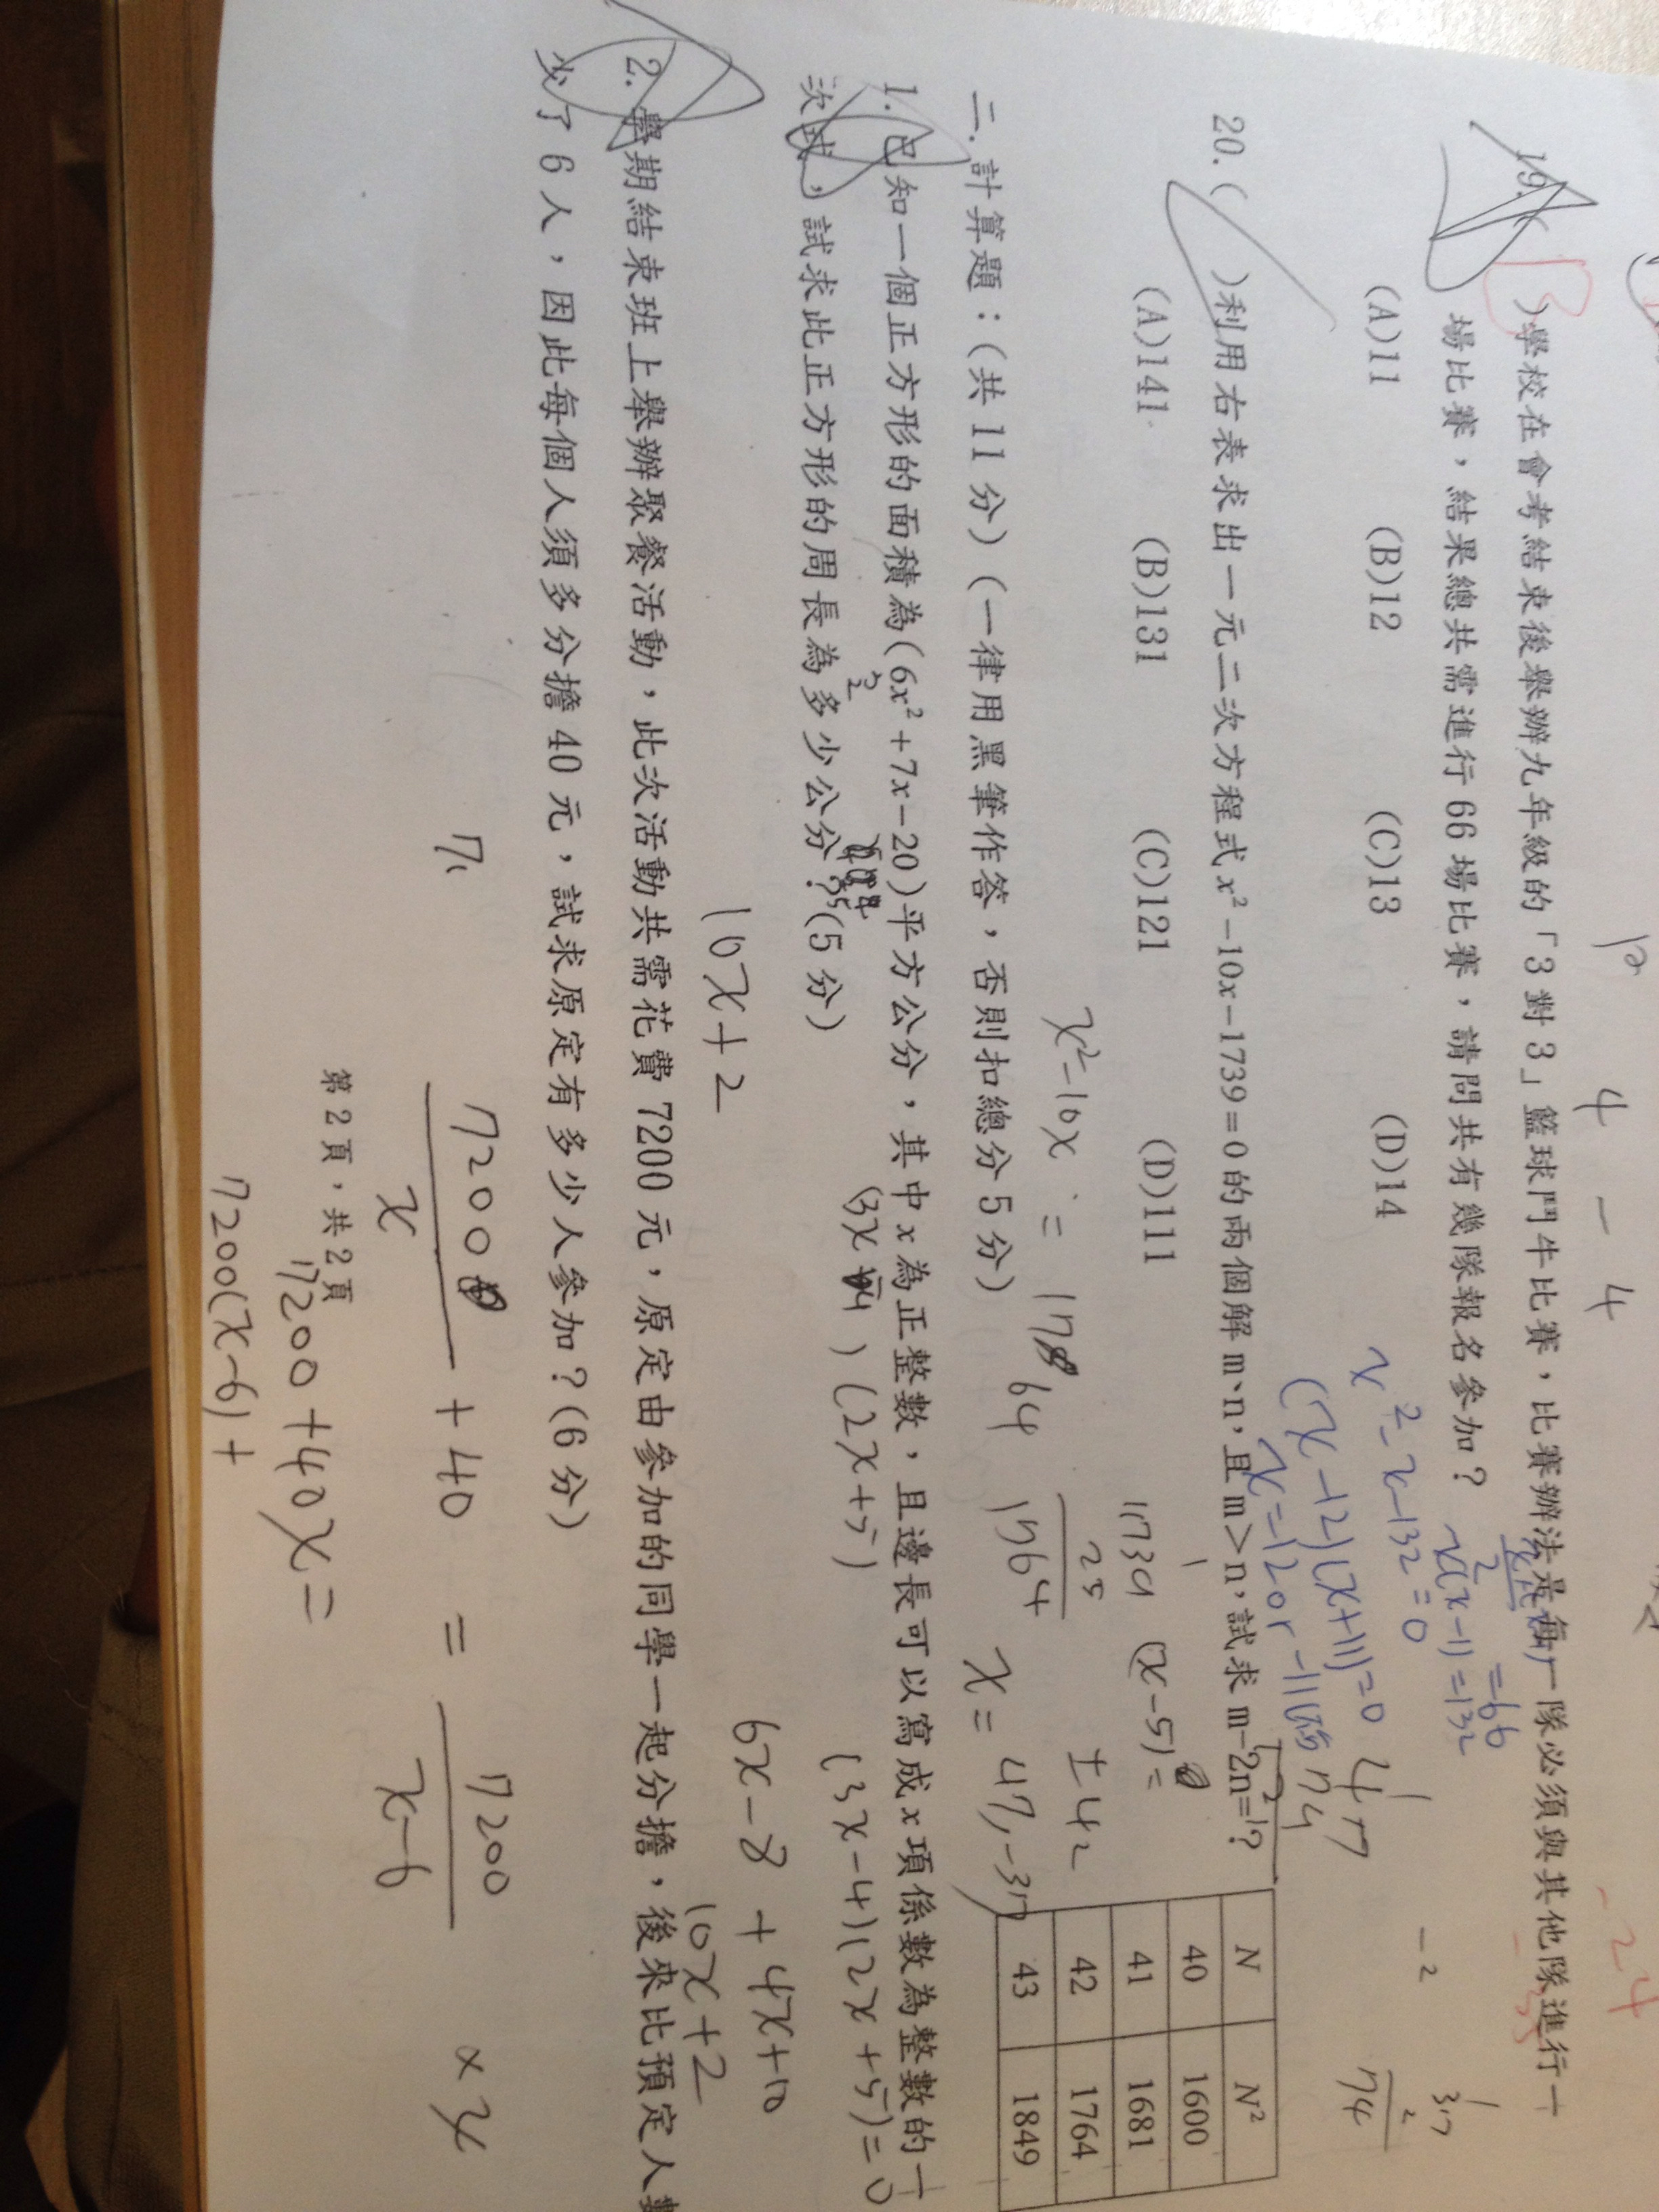 19.( B )學校在會考結束後舉辦九年級的「3 對 3」籃球鬥牛比賽，比賽辦法是每一隊必須與其他隊進行一
場比賽，結果總共需進行 66 場比賽，請問共有幾隊報名參加？
(A)11 (B)12 (C)13 (D)14
=66
x(x-1)=132
x²-x-132=0
(x-12)(x+11)=0
x=12or -11
20.( )利用右表求出一元二次方程式 x²-10x-1739=0 的兩個解 m、n，且 m>n，試求 m-2n=?
(A)141 (B)131 (C)121 (D)111
N N²
40 1600
41 1681
42 1764
43 1849
1739
25
1764
(x-5)=
±42
x²-10x = 17 64
x= 47,-37
37
2
74
二.計算題：(共 11 分)(一律用黑筆作答，否則扣總分 5 分)
1.已知一個正方形的面積為(6x²+7x-20)平方公分，其中 x 為正整數，且邊長可以寫成 x 項係數為整數的一
次式，試求此正方形的周長為多少公分？(5 分)
(3x-4)(2x+5)
(3x-4)(2x+5)=0
6x-8 +4x+10
10x+2
10x+2
2.學期結束班上舉辦聚餐活動，此次活動共需花費 7200 元，原定由參加的同學一起分擔，後來比預定人數
少了 6 人，因此每個人須多分擔 40 元，試求原定有多少人參加？(6 分)
7200/x +40 = 7200/x-6
第 2 頁，共 2 頁
7200+40x=
7200(x-6)+